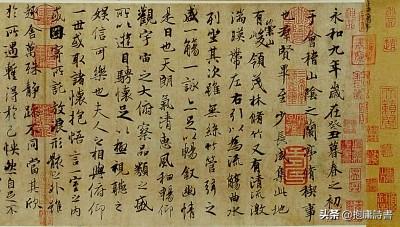 永和九年歲在癸丑暮春之初會
于會稽山陰之蘭亭脩稧事
也羣賢畢至少長咸集此地
有崇山峻領茂林脩竹又有清流激
湍暎帶左右引以為流觴曲水
列坐其次雖無絲竹管弦之
盛一觴一詠亦足以暢敘幽情
是日也天朗氣清惠風和暢仰
觀宇宙之大俯察品類之盛
所以遊目騁懷足以極視聽之
娛信可樂也夫人之相與俯仰
一世或取諸懷抱悟言一室之內
或因寄所託放浪形骸之外雖
趣舍萬殊靜躁不同當其欣
於所遇蹔得於己怏然自足不
头条 @抱庸詩書